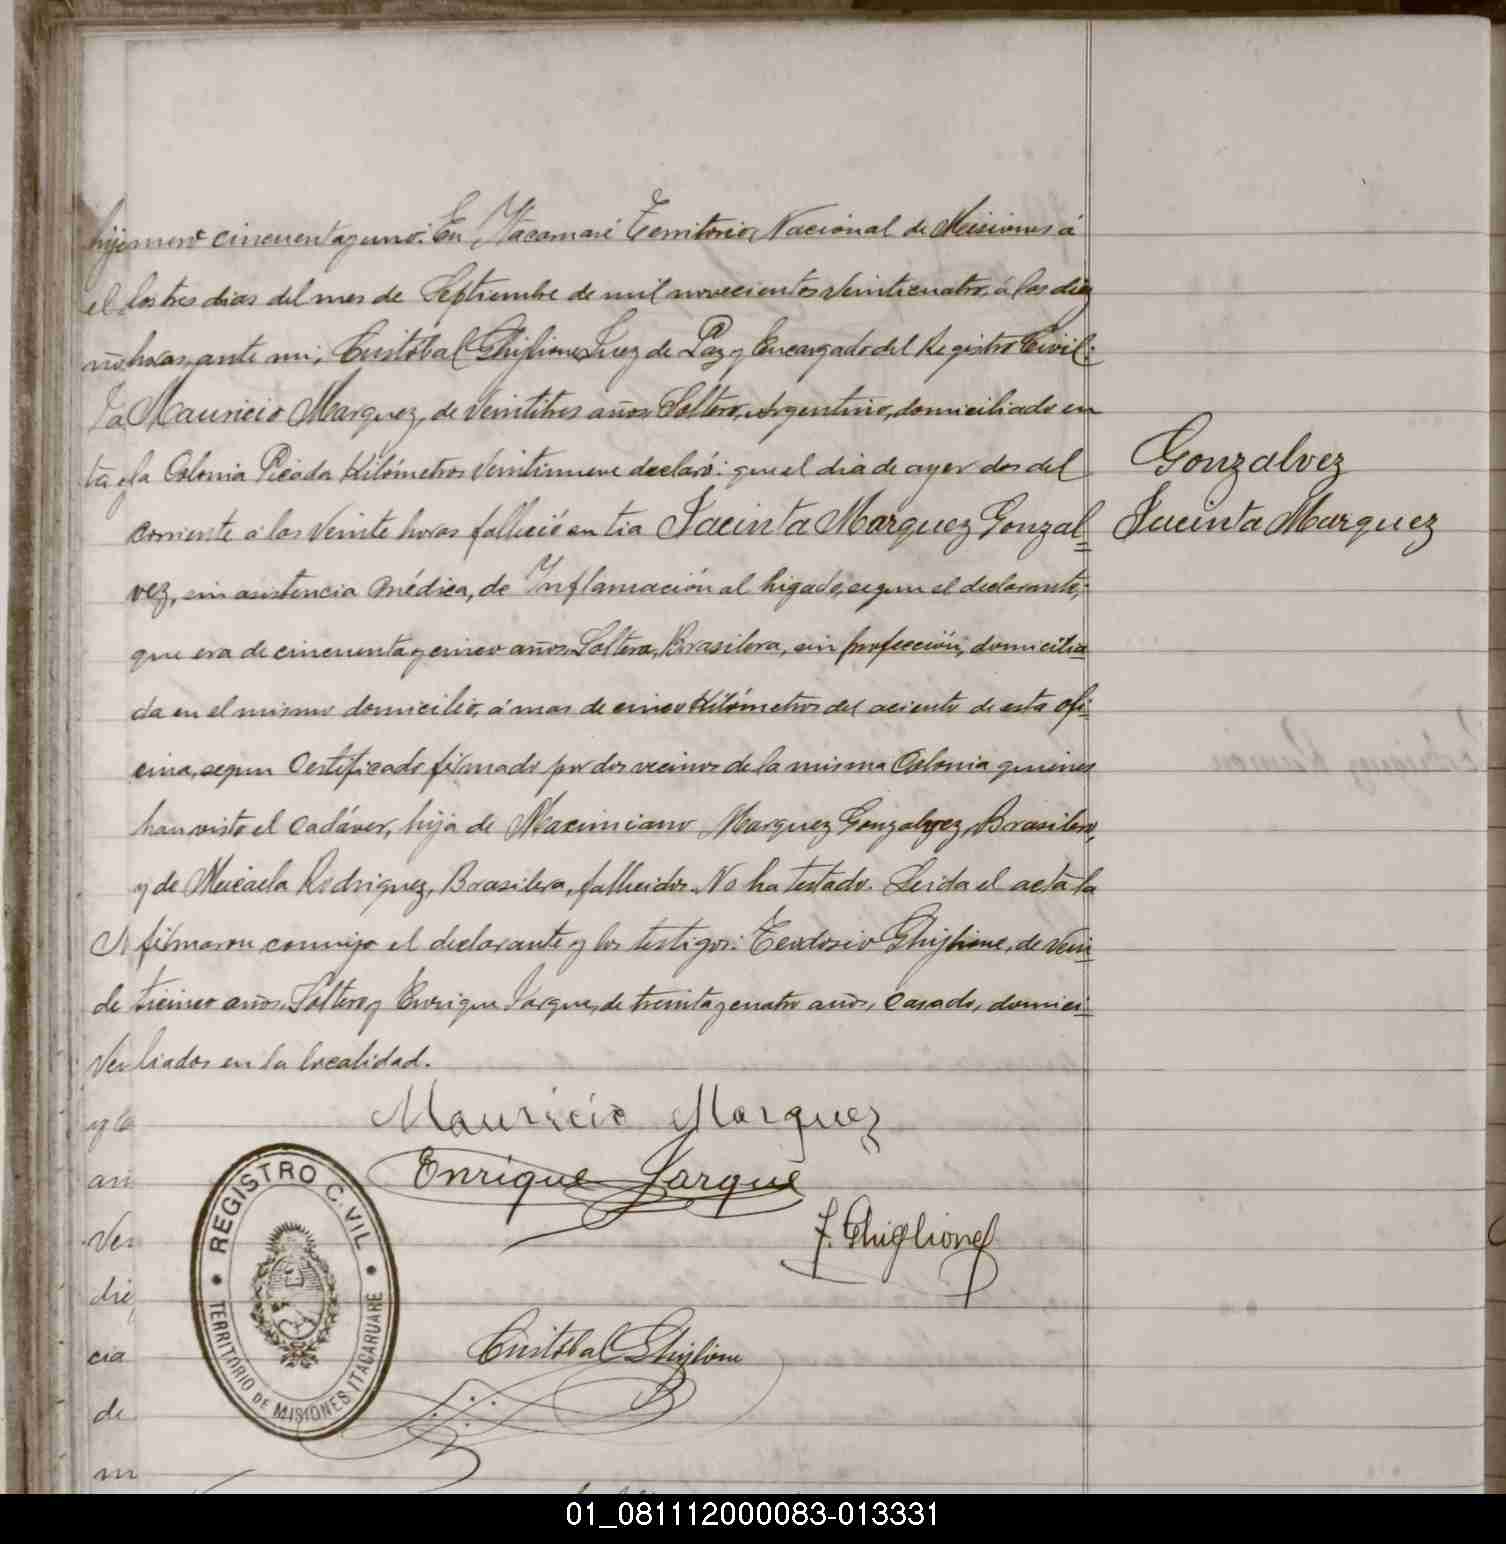 número cincuenta y uno: En Itacaruaré Territorio Nacional de Misiones á
los tres dias del mes de Septiembre de mil novecientos veinticuatro, á las diez
horas, ante mi, Cristobal Ghiglione, Juez de Paz y Encargado del Registro Civil:
Mauricio Marquez, de veintitres años, Soltero, Argentino, domiciliado en
la Colonia Picada Kilómetros veintinueve declaró: que el dia de ayer dos del
corriente á las veinte horas falleció su tia Jacinta Marquez Gonzal=
vez, sin asistencia médica, de Inflamación al higado, segun el declarante;
que era de cincuenta y cinco años, Soltera, Brasilera, sin profección, domicilia
da en el mismo domicilio, á mas de cinco Kilómetros del aciento de esta ofi
cina, segun Certificado firmado por dos vecinos de la misma Colonia quienes
han visto el cadáver, hija de Maximiano Marquez Gonzalvez, Brasilero,
y de Micaela Rodriguez, Brasilera, fallecidos. No ha testado. Leida el acta la
firmaron conmigo el declarante y los testigos: Teodosio Ghiglione, de vein
ticinco años, Soltero y Enrique Jarque, de treinta y cuatro años, Casado, domici
liados en la localidad.
Gonzalvez
Jacinta Marquez
Mauricio Marquez
Enrique Jarque
T. Ghiglione
Cristobal Ghiglione
REGISTRO CIVIL
TERRITORIO DE MISIONES ITACARUARE
01_081112000083-013331